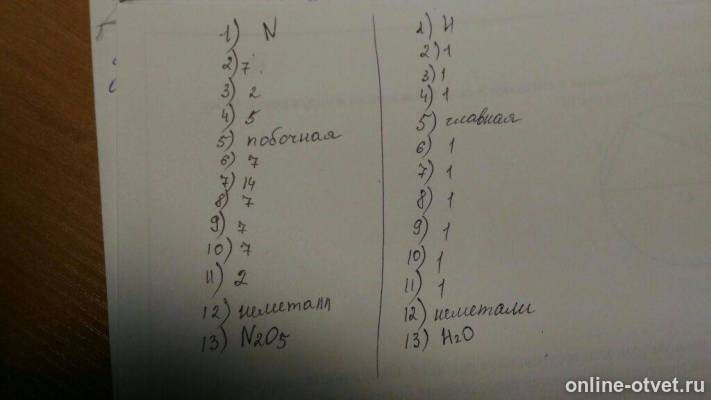 1) N
2) 7
3) 2
4) 5
5) побочная
6) 7
7) 14
8) 7
9) 7
10) 7
11) 2
12) неметалл
13) N2O5
1) H
2) 1
3) 1
4) 1
5) главная
6) 1
7) 1
8) 1
9) 1
10) 1
11) 1
12) неметалл
13) H2O
online-otvet.ru